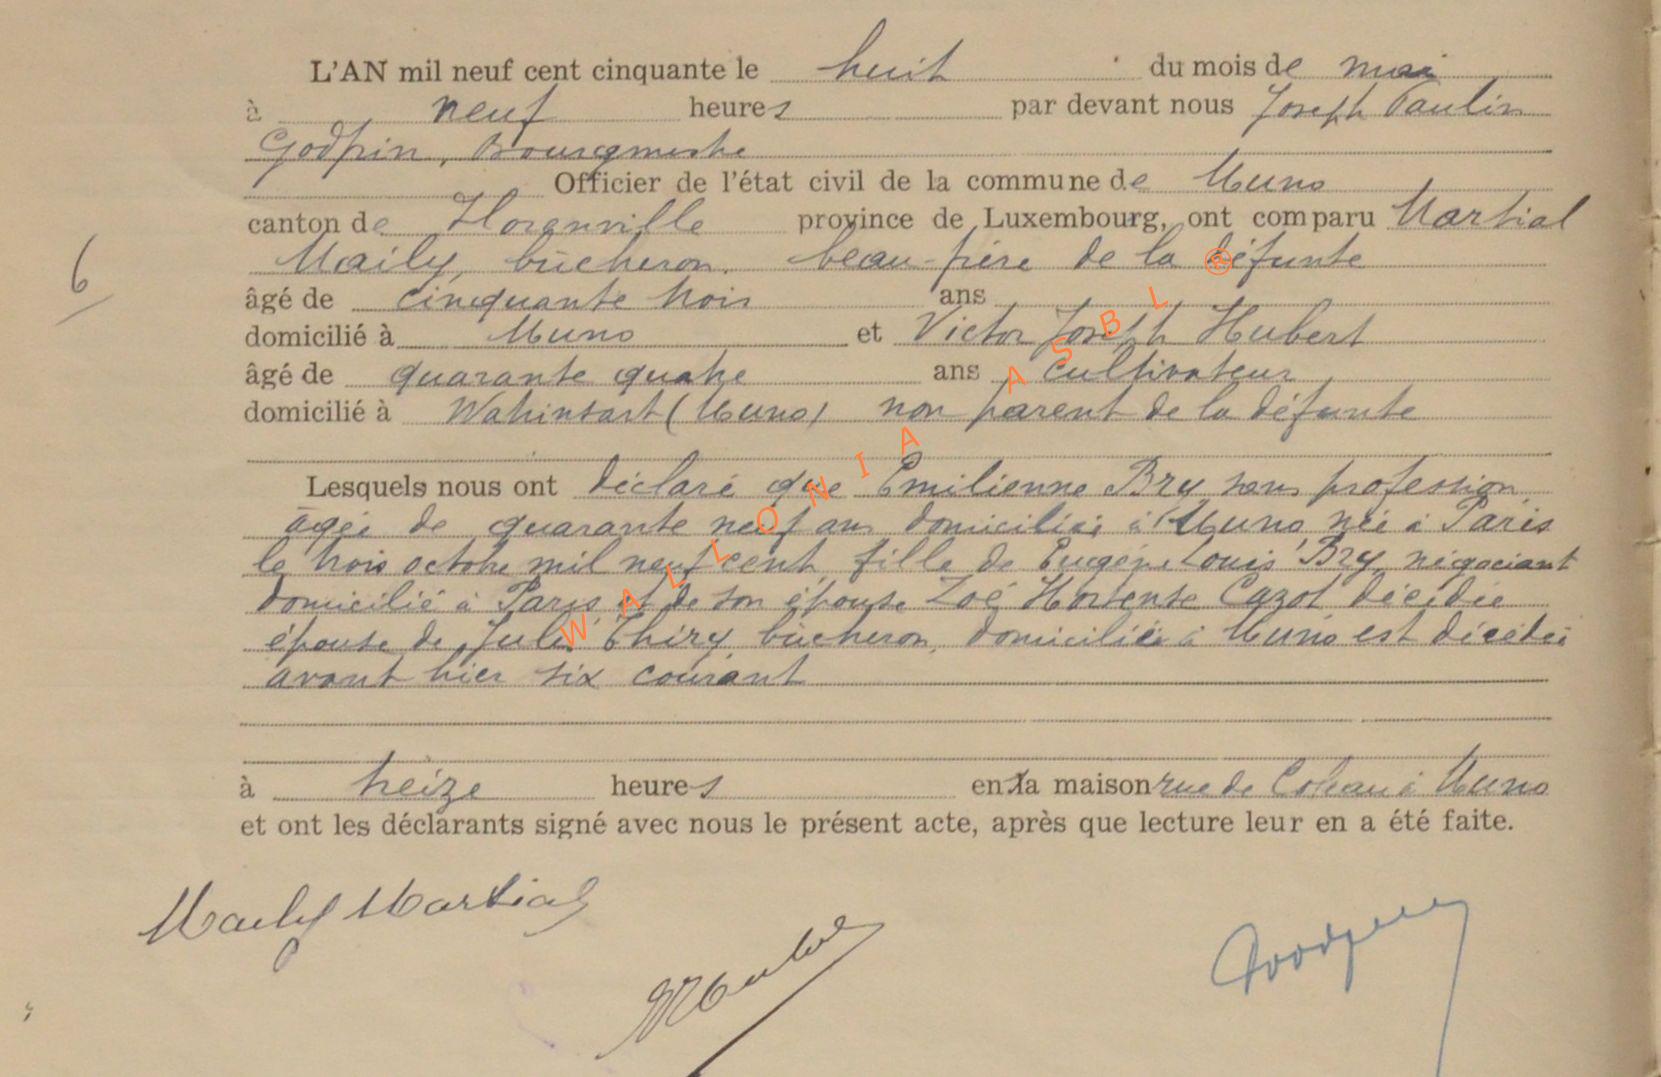 L'AN mil neuf cent cinquante le huit du mois de mai
à neuf heures par devant nous Joseph Paulin
Godfrin, Bourgmestre
Officier de l'état civil de la commune de Muno
canton de Florenville province de Luxembourg, ont comparu Martial
Maily, bûcheron, beau-frère de la défunte
âgé de cinquante trois ans
domicilié à Muno et Victor Joseph Hubert
âgé de quarante quatre ans cultivateur
domicilié à Watrinsart (Muno) non parent de la défunte
Lesquels nous ont déclaré que Emilienne Bry sans profession
âgée de quarante neuf ans domiciliée à Muno, née à Paris
le trois octobre mil neuf cent, fille de Eugène Louis Bry, négociant
domicilié à Paris et de son épouse Zoé Hortense Cazot décédée
épouse de Jules Thiry, bûcheron, domiciliée à Muno est décédée
avant hier six courant
à treize heures en sa maison rue de à Muno
et ont les déclarants signé avec nous le présent acte, après que lecture leur en a été faite.
6
Maily Martial
WALLONIA ASBL ®